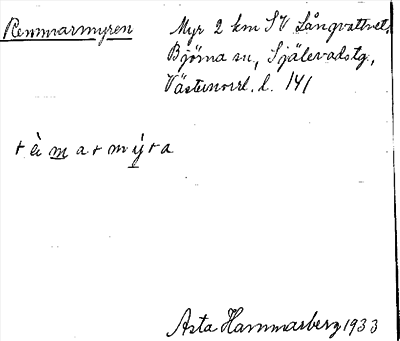 Remmarmyren
Myr 2 km SV Långvattnet,
Björna sn, Själevads tg.,
Västernorrl. l. 141
rèmarmýra
Asta Hammarberg 1933